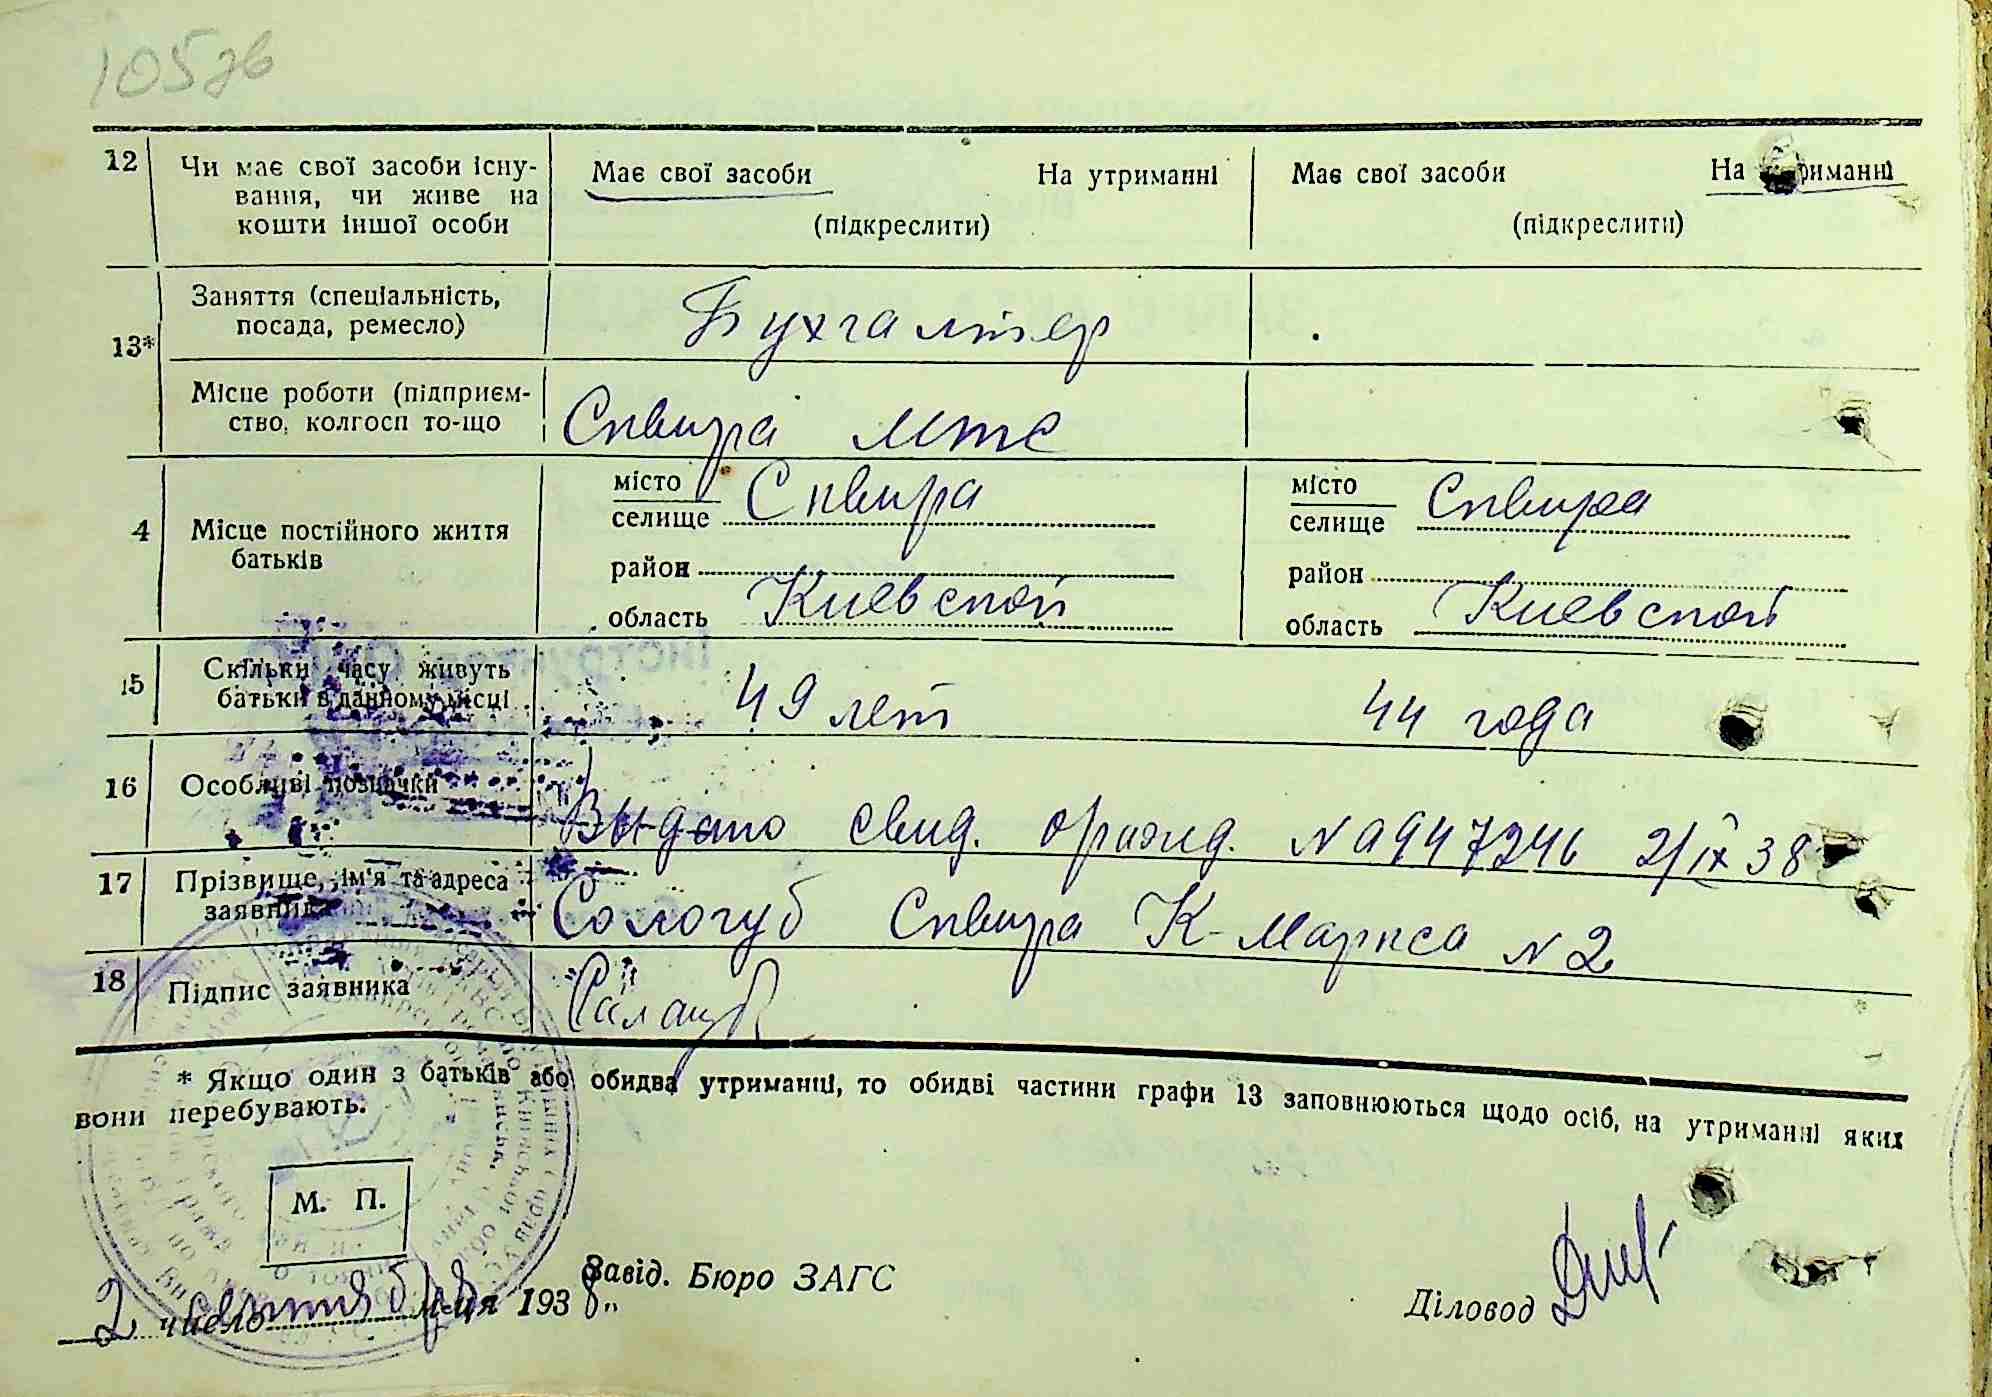 105 зв
12 Чи має свої засоби існу- Має свої засоби На утриманні Має свої засоби На утриманні
вання, чи живе на
кошти іншої особи (підкреслити) (підкреслити)
13* Заняття (спеціальність,
посада, ремесло) Бухгалтер
Місце роботи (підприєм-
ство, колгосп то-що Сквира мтс
місто Сквира місто Сквира
селище селище
4 Місце постійного життя
батьків
район район
область Киевской область Киевской
15 Скільки часу живуть
батьки в данному місці 49 лет 44 года
16 Особливі позначки Выдано свид. о рожд. N 0947246 2/IX 38
17 Прізвище, ім'я та адреса
заявника Сологуб Сквира К-Маркса N 2
18 Підпис заявника Сологуб
* Якщо один з батьків або обидва утриманці, то обидві частини графи 13 заповнюються щодо осіб, на утриманні яких
вони перебувають.
М. П.
Завід. Бюро ЗАГС
2 число сентября м-ця 1938 „ Діловод